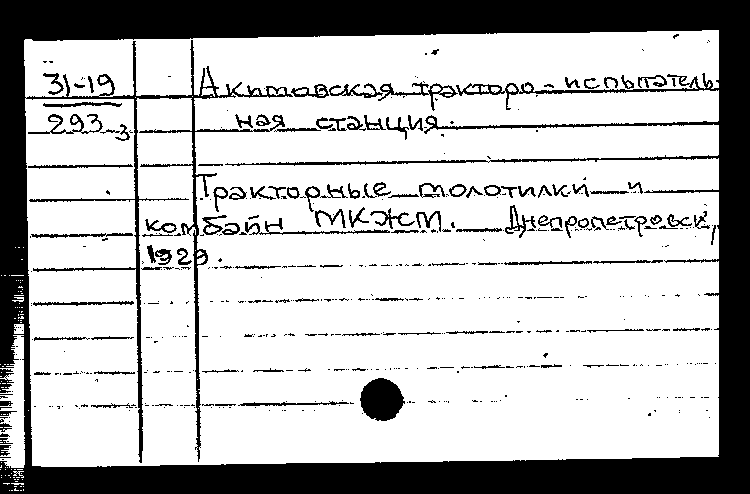 31-19
293 3
Акимовская тракторо-испытатель-
ная станция.
Тракторные молотилки и
комбайн МКЖМ. Днепропетровск,
1929.